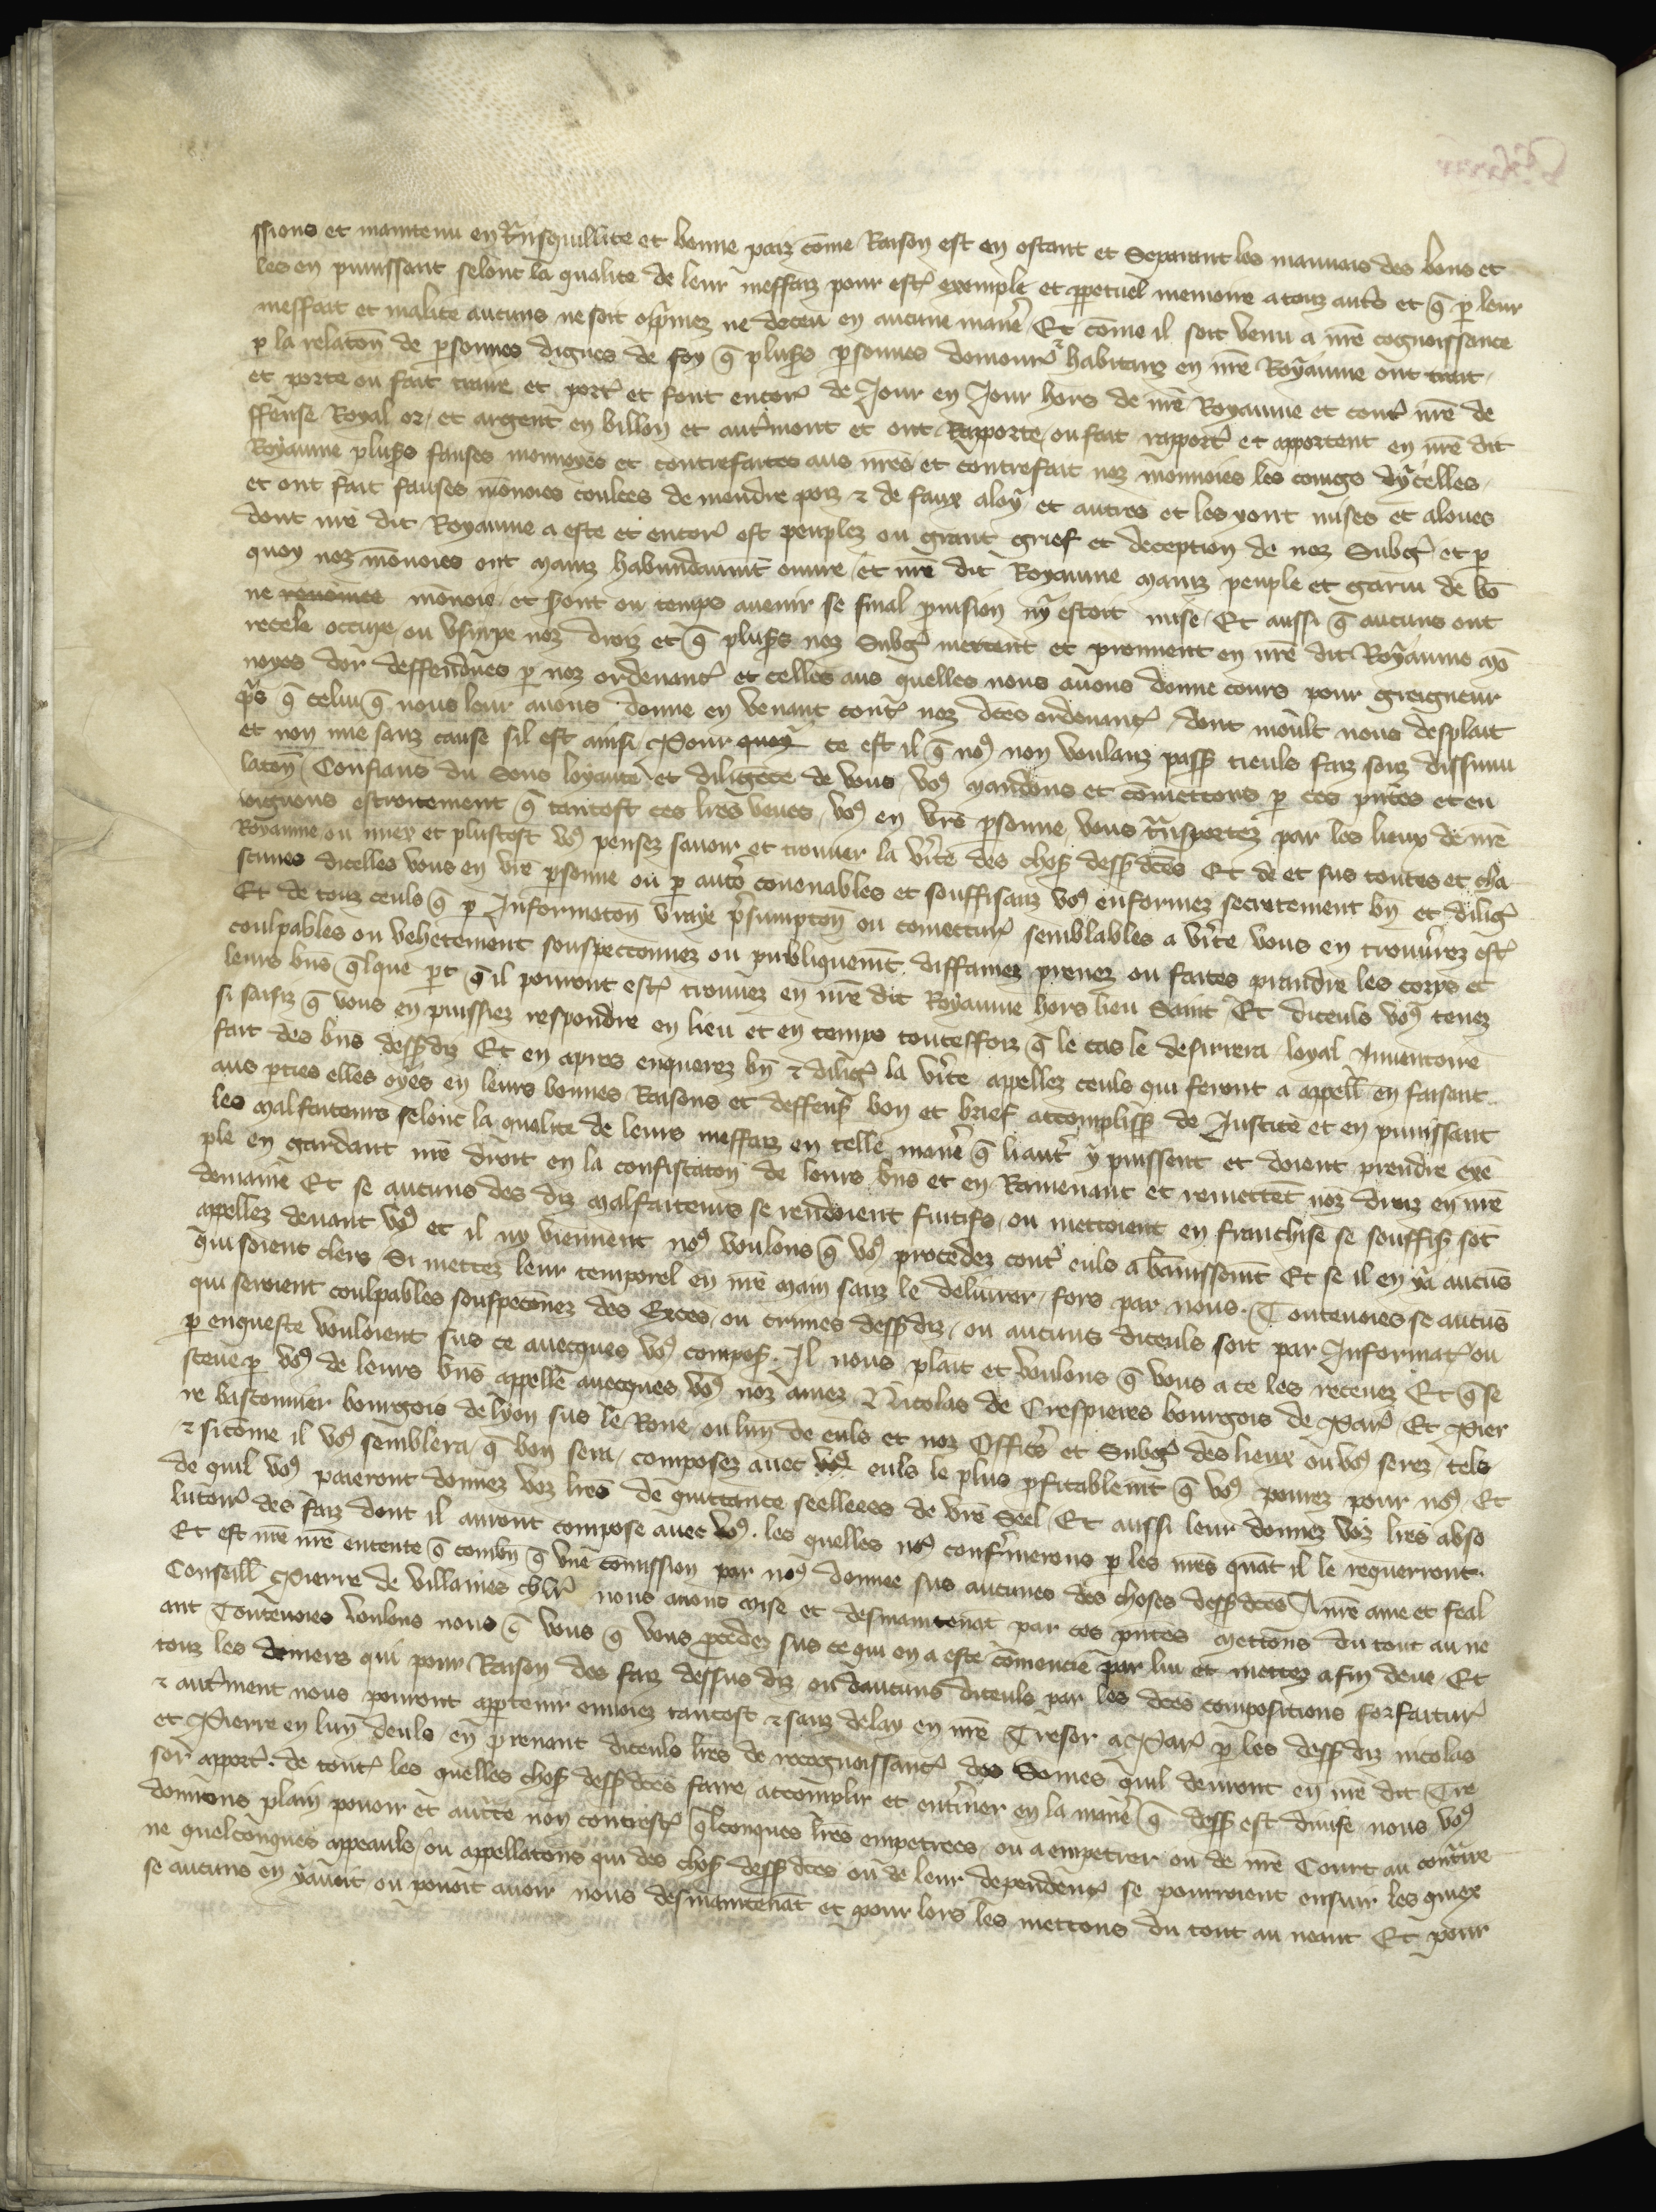 ssions et maintenu en t̃nsquillite et bonne paiz cõme Raison est en ostant et Separant les mauvais des bons et
les en punissant selont la qualite de leur meffaiz pour est̾ exemple et ꝑpetuel memoire a touz aut̾s et q̃ ꝑ leur
meffait et malice aucuns ne soit op̃mez ne deceu en aucune mañe Et cõme il soit venu a nr̃e cognoissance
ꝑ la relatoñ de ꝑsonnes dignes de foy q̃ plus̾s ꝑsonnes demourñ habitanz en nr̃e Royaume ont trait
et porte ou fait traire et port̾ et font encor̾ de Jour en Jour hors de nr̃e Royaume et cont̾ nr̃e de
ffense Royal or et argent en billon et aut̾ment et ont Rapporte ou fait rapport̾ et apportent en nr̃e dit
Royaume plus̾s fauses monnoyes et contrefaites aus nr̃es et contrefait noz monnoies les coings dycelles
et ont fait fauses mõnoies coulees de mendre pois ⁊ de faux aloy et autres et les y ont mises et aloues
dont nr̃e dit Royaume a este et encor̾ est peuplez ou grant grief et deception de noz Subg̾ et ꝑ
quoy noz mõnoies ont mainz habundaum̃t ouure et nr̃e dit Royaume mainz peuple et garni de bõ
ne renõmee mõnoie et s̾ont ou temps auenir se final ꝑuision ny estoit mise Et aussi q̃ aucuns ont
recele occupe ou vsurpe noz droiz et q̃ plus̾s noz Subg̾ mettent et prennent en nr̃e dit Royaume mõ
noyes dor deffendues ꝑ noz ordenanc̾ et celles aus quelles nous auons donne cours pour greigneur
pris q̃ celui q̃ nous leur auons donne en venant cont̾ noz dc̃es ordenanc̾ dont moult nous desplait
et non mie sanz cause sil est ainsi Pour quoy ce est il q̃ no⁹ non voulanz pass̾ tieuls faiz souz dissimu
latoñ Confians du Sens loyaute et diligẽce de vous vo⁹ mandons et cõmettons ꝑ ces pñtes et en
ioignons estroitement q̃ tantost ces lr̃es veues vo⁹ en vr̃e ꝑsonne vous t̃nsportez par les lieux de nr̃e
Royaume ou miex et plustost vo⁹ pensez sauoir et trouuer la v̾ite des chos̾ dess̾ dc̃es Et de et sus toutes et cha
scunes dicelles vous en vr̃e ꝑsonne ou ꝑ aut̾s conuenables et souffisanz vo⁹ enformez secretement bñ et dilig̾
Et de touz ceuls q̃ ꝑ Informatoñ vraye p̃sumptoñ ou coniectur̾ semblables a v̾ite vous en trouũez est̾
coulpables ou vehetement souspeconnez ou publiquem̃t diffamez prenez ou faites prandre les corps et
leurs bñs q̃lque ꝑt q̃ il pourront est̾ trouuez en nr̃e dit Royaume hors lieu Saint Et diceuls vo⁹ tenez
si saisiz q̃ vous en puissiez respondre en lieu et en temps toutesfoiz q̃ le cas le desirrera loyal Inuentoire
fait des bñs dess̾ diz Et en apres enquerez bñ ⁊ dilig̾ la v̾ite apellez ceuls qui feront a appell̾ en faisant
aus ꝑties elles oyes en leurs bonnes Raisons et deffens̾ bon et brief accompliss̾ de Justice et en punissant
les malfaiteurs selonc la qualite de leurs meffaiz en telle mañe q̃ li aut̾ y puissent et doient prendre exẽ
ple en gardant nr̃e droit en la confiscatoñ de leurs bñs et en Ramenant et remettẽt noz droiz en nr̃e
demaine Et se aucuns des diz malfaiteurs se rendoient fuitifs ou mettoient en franchise se souffis̾ sõt
appellez deuant vo⁹ et il ny viennent no⁹ voulons q̃ vo⁹ procedez cont̾ euls a bannissem̃t Et se il en ya aucũs
qui soient clers Si mettez leur temporel en nr̃e main sanz le deliurer fors par nous. Touteuoies se aucũs
qui seroient coulpables souspeconnez des Exces ou crimes dess̾ diz ou aucuns diceuls soit par Informat̾ ou
ꝑ enqueste vouloient sus ce auecques vo⁹ compos̾. Il nous plait et voulons q̃ vous a ce les receuez Et q̃ se
steue ꝑ vo⁹ de leurs bñs appelle auecques vo⁹ noz amez Nicolas de Crespieres bourgois de Par̾ Et Pier
re bastonnier bourgois de lyon sus le Rone ou lun de euls et noz Offic̾s et Subg̾ des lieux ou vo⁹ serez tels
⁊ si cõme il vo⁹ semblera q̃ bon sera composez auec vo⁹ euls le plus ꝓfitablem̃t q̃ vo⁹ pourez pour no⁹ Et
de quil vo⁹ paieront donnez voz lr̃es de quittance seellees de vr̃e Seel Et aussi leur donnez voz lr̃es abso
lutoir̾ des faiz dont il auront compose auec vo⁹. les quelles no⁹ conf̾merons ꝑ les nr̃es quãt il le requerront.
Et est nr̃e nr̃e entente q̃ combñ q̃ vne cõmission par no⁹ donnee sus aucunes des choses dess̾ dc̃es A nr̃e ame et feal
Conseill̾ Pierre de Villaines chl̾r nous auons mise et desmaintenãt par ces pñtes mettons du tout au ne
ant Touteuoies voulons nous q̃ vous q̃ vous ꝓcedez sus ce qui en a este cõmencie par lui et mettez a fin deue Et
touz les deniers qui pour Raison des faiz dessus diz ou daucuns diceuls par les dc̃es compositions forfaitur̾
⁊ aut̾ment nous pourront appartenir enuoiez tantost ⁊ sanz delay en nr̃e Tresor a Par̾ ꝑ les dess̾ diz nicolas
et Pierre en lun deuls en prenant diceuls lr̃es de recognoissanc̾ des Sõmes quil deuront en nr̃e dit Tre
sor aport̾. de tout̾ les quelles chos̾ dess̾ dc̃es faire accomplir et ent̾iner en la mañe q̃ dess̾ est diuise nous vo⁹
donnons plain pouoir et auc̃te non contrest̾ q̃lconques lr̃es empetrees ou a empetrer ou de nr̃e Court au cont̾re
ne quelconques appeauls ou appellatoñs qui des chos̾ dess̾ dc̃es ou de leur dependenc̾ se pourroient ensuir les quiex
se aucuns en y auoit ou pouoit auoir nous desmaintenãt et pour lors les mettons du tout au neant Et pour